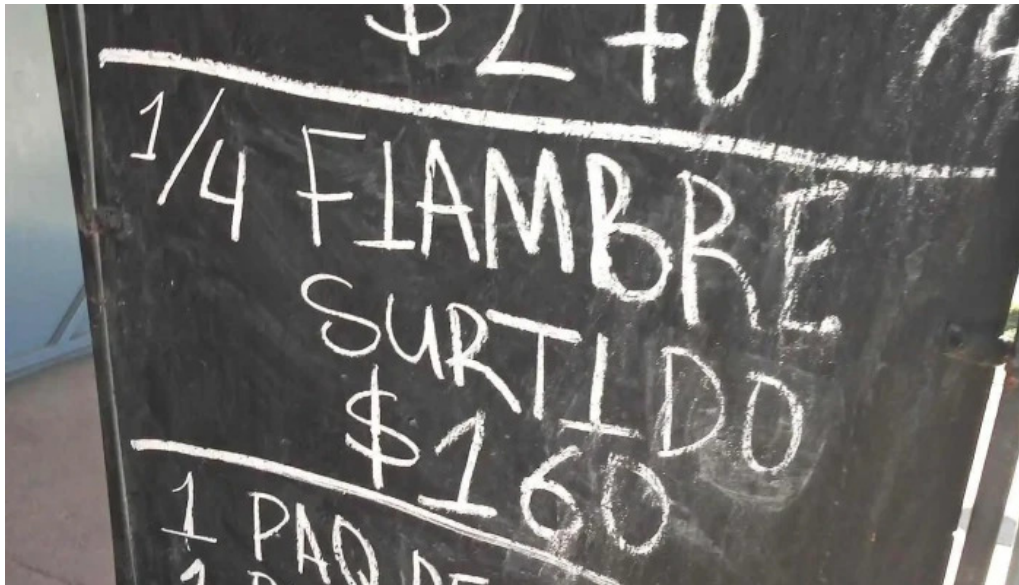 $240
1/4 FIAMBRE
SURTIDO
$160
1 PAQ DE
1